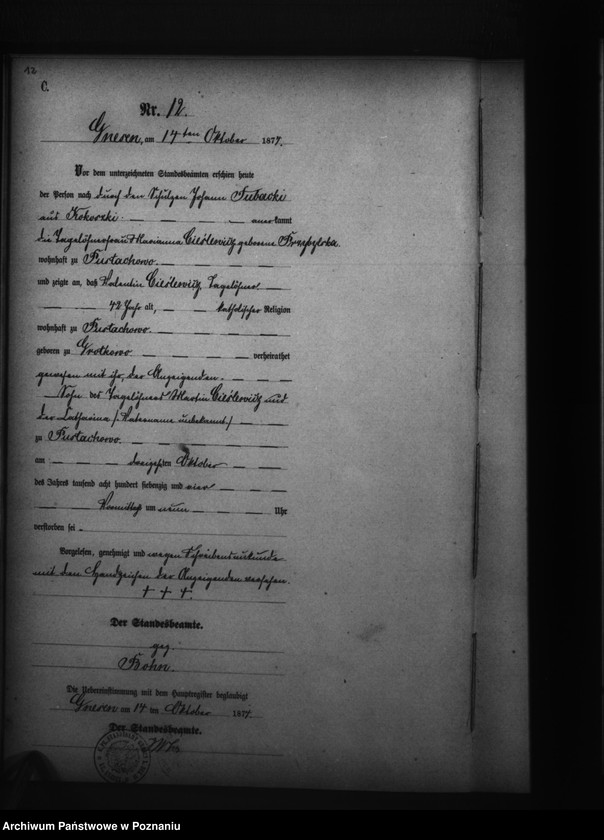 12
C.
Nr. 12.
Gnesen, am 14ten Oktober 1874.
Vor dem unterzeichneten Standesbeamten erschien heute
der Person nach durch den Schulzen Johann
aus Kokoszki anerkannt
die Tagelöhnerfrau Marianna geborene
wohnhaft zu
und zeigte an, daß Valentin Tagelöhner
42 Jahr alt, katholischer Religion
wohnhaft zu
geboren zu verheirathet
gewesen mit ihr, der Anzeigenden.
Sohn des Tagelöhners Martin und
der Catharina (Vatersname unbekannt)
zu
am dreizehnten Oktober
des Jahres tausend acht hundert siebenzig und vier
Vormittags um neun Uhr
verstorben sei.
Vorgelesen, genehmigt und wegen Schreibensunkunde
mit den Handzeichen der Anzeigenden versehen.
+ + +
Der Standesbeamte.
gez
Die Uebereinstimmung mit dem Hauptregister beglaubigt
Gnesen am 14 ten Oktober 1874.
Der Standesbeamte.
Archiwum Państwowe w Poznaniu